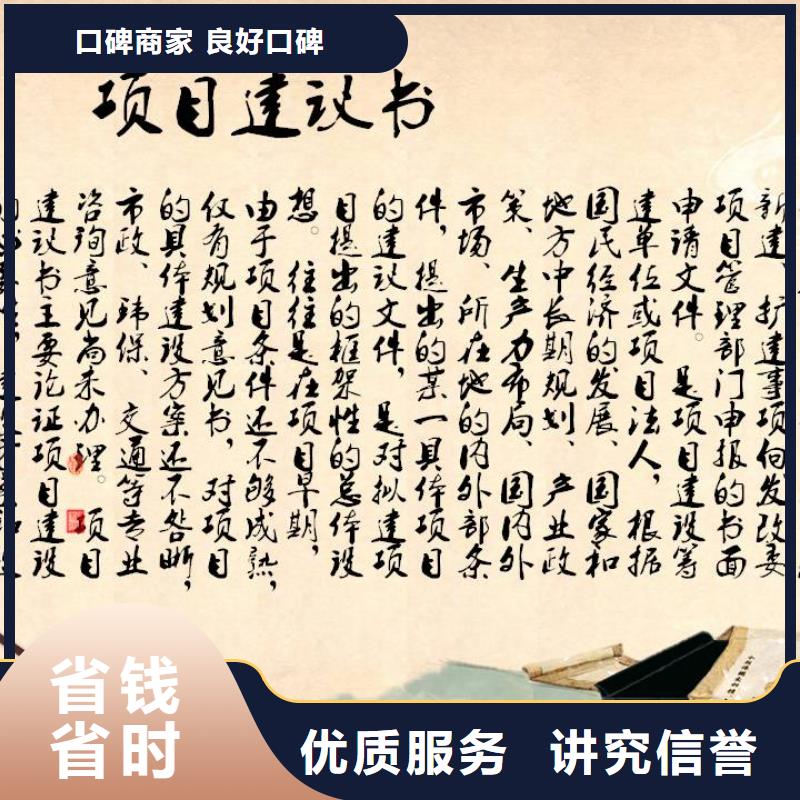 口碑商家 良好口碑
项目建议书
新建、扩建事项向发改委
项目管理部门申报的书面
申请文件。是项目建设筹
建单位或项目法人，根据
国民经济的发展、国家和
地方中长期规划、产业政
策、生产力布局、国内外
市场、所在地的内外部条
件，提出的某一具体项目
的建议文件，是对拟建项
目提出的框架性的总体设
想。往往是在项目早期，
由于项目条件还不够成熟，
仅有规划意见书，对项目
的具体建设方案还不咎晰，
市政、玮保、交通等专业
咨询意见尚未办理。项目
建议书主要论证项目建设
省钱
省时
优质服务 讲究信誉